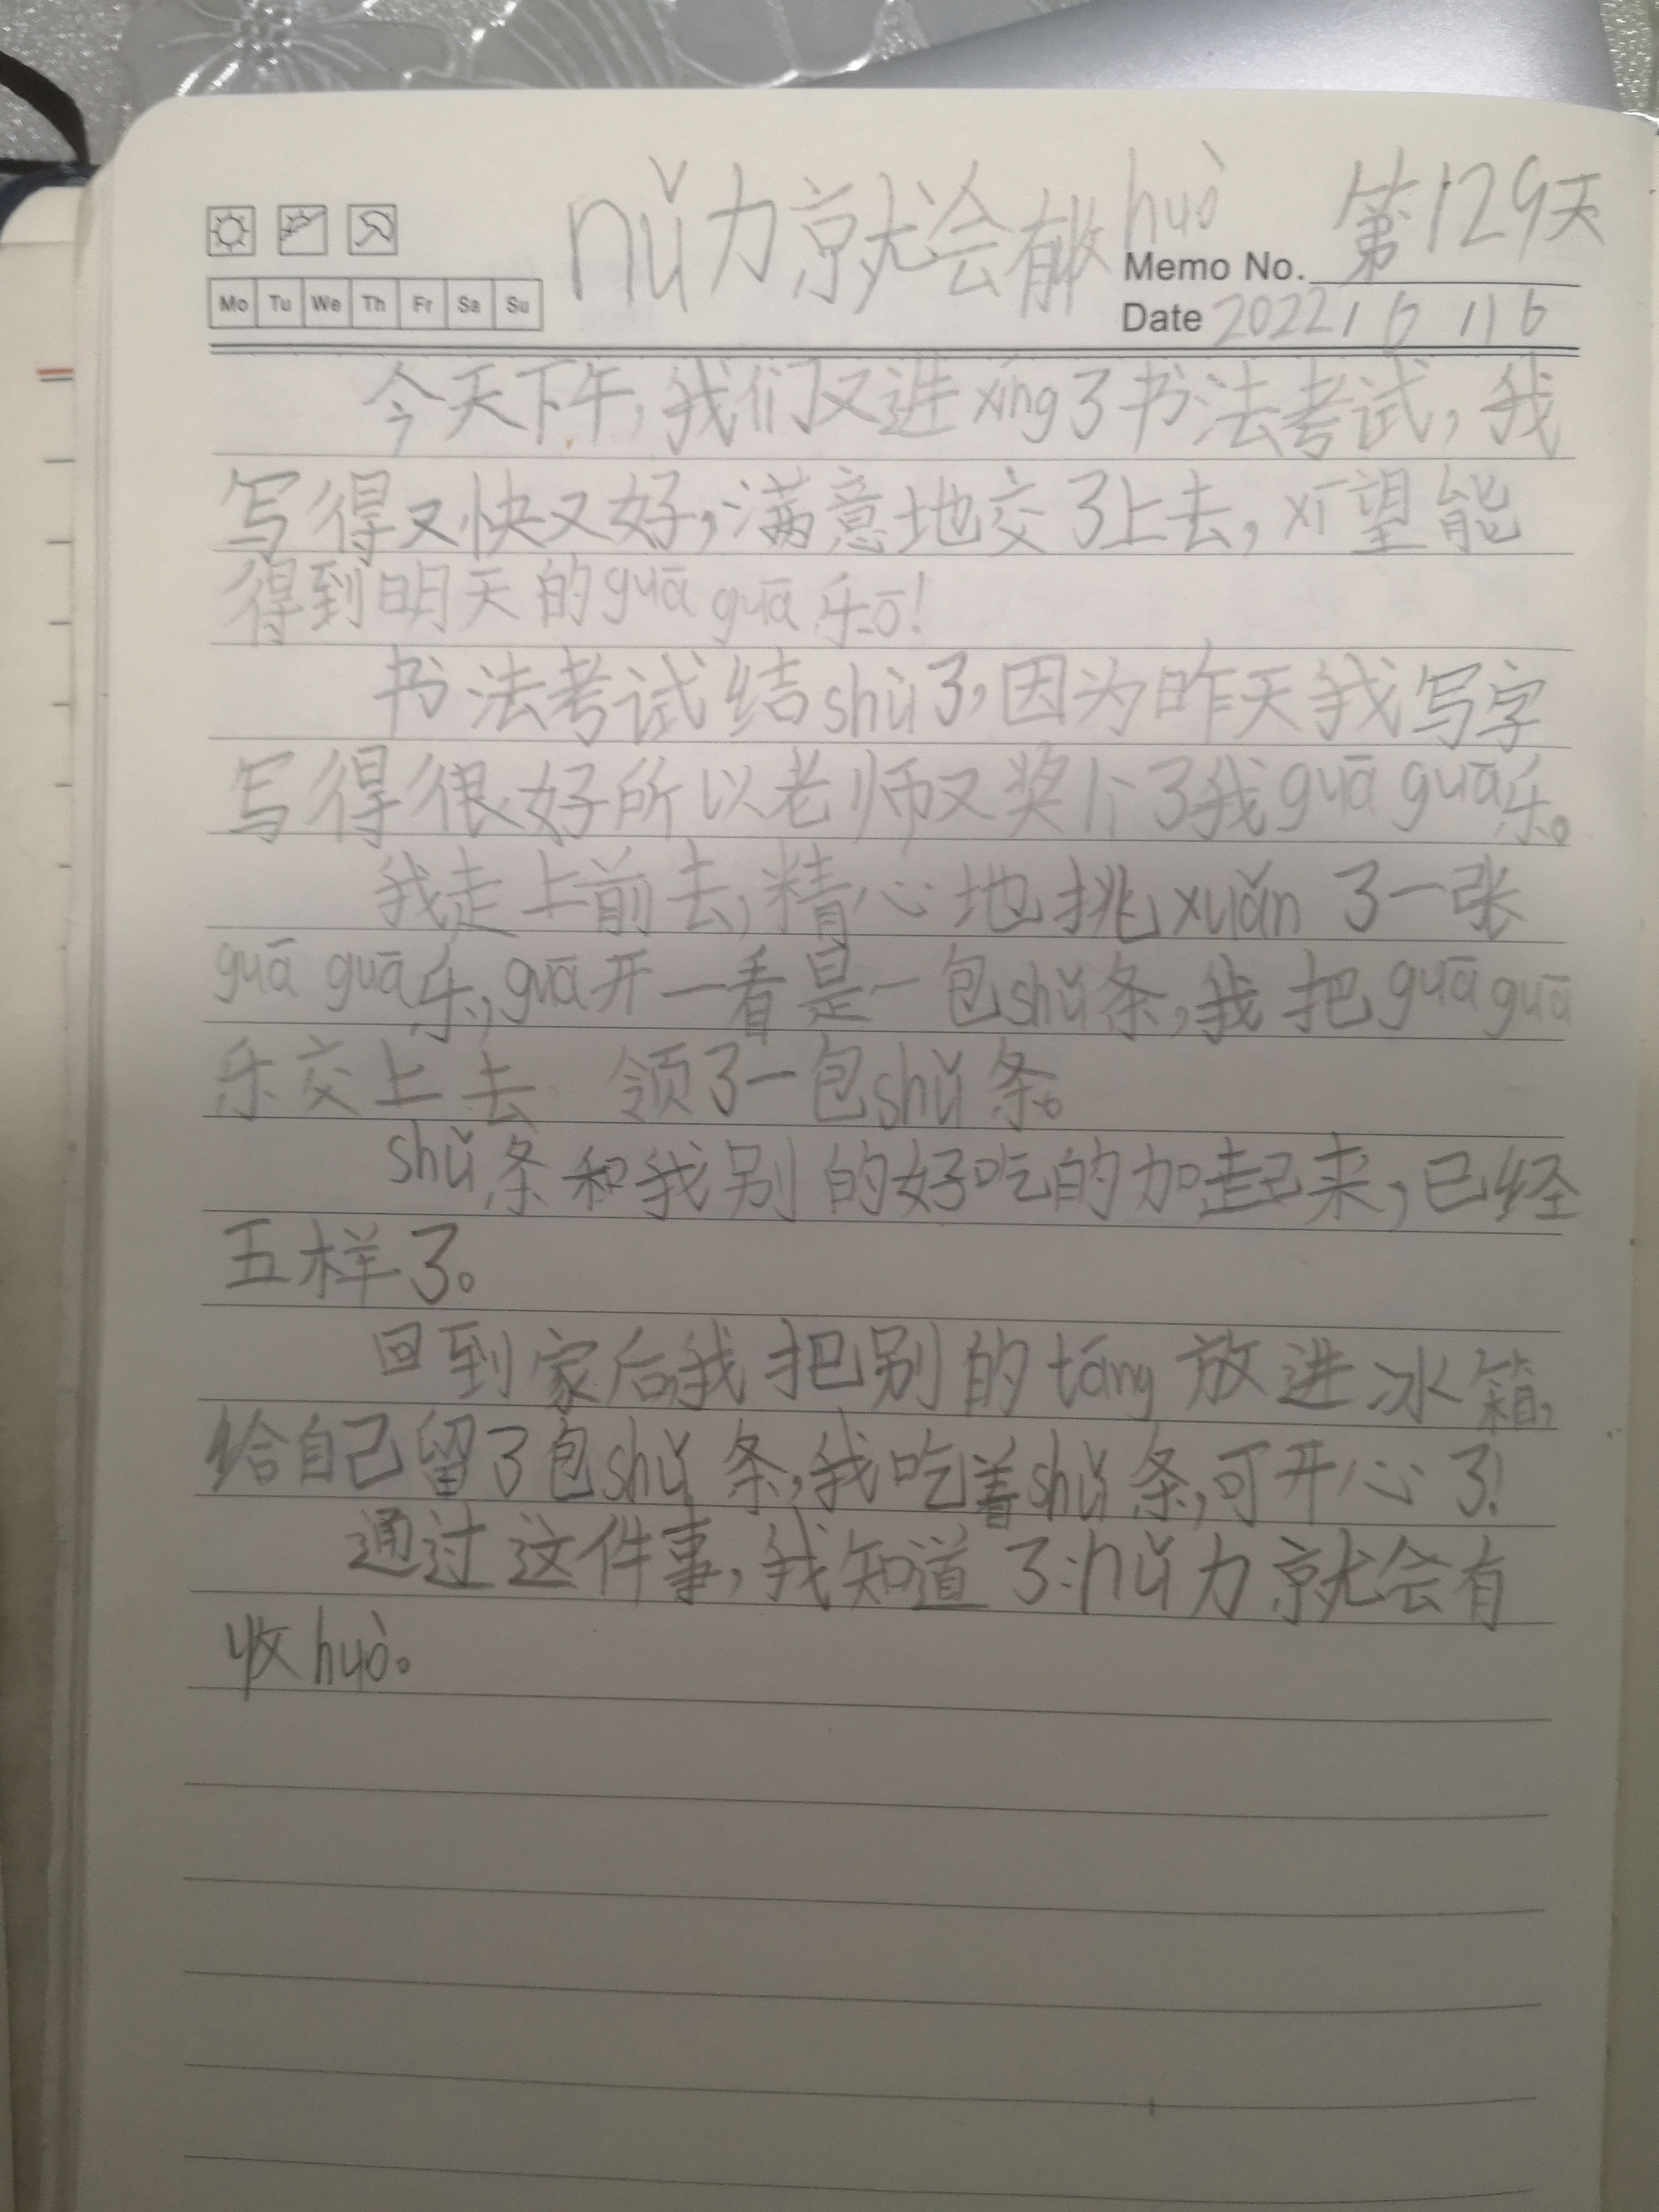 nǔ力就会有收huò 第129天
Memo No.
Mo Tu We Th Fr Sa Su
Date 2022 16 116
今天下午,我们又进xíng了书法考试,我
写得又快又好,满意地交了上去,xī望能
得到明天的guā guā乐ō!
书法考试结shù了,因为昨天我写字
写得很好所以老师又奖个了我guā guā乐。
我走上前去,精心地挑xuǎn了一张
guā guā乐,guā开一看是一包shǔ条,我把guā guā
乐交上去 领了一包shǔ条。
shǔ条和我别的好吃的加起来,已经
五样了。
回到家后我把别的táng放进冰箱,
给自己留了包shǔ条,我吃着shǔ条,可开心了!
通过这件事,我知道了:nǔ力就会有
收huò。